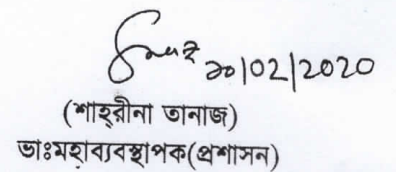 ২০|02|2020
(শাহ্‌রীনা তানাজ)
ভাঃমহাব্যবস্থাপক(প্রশাসন)